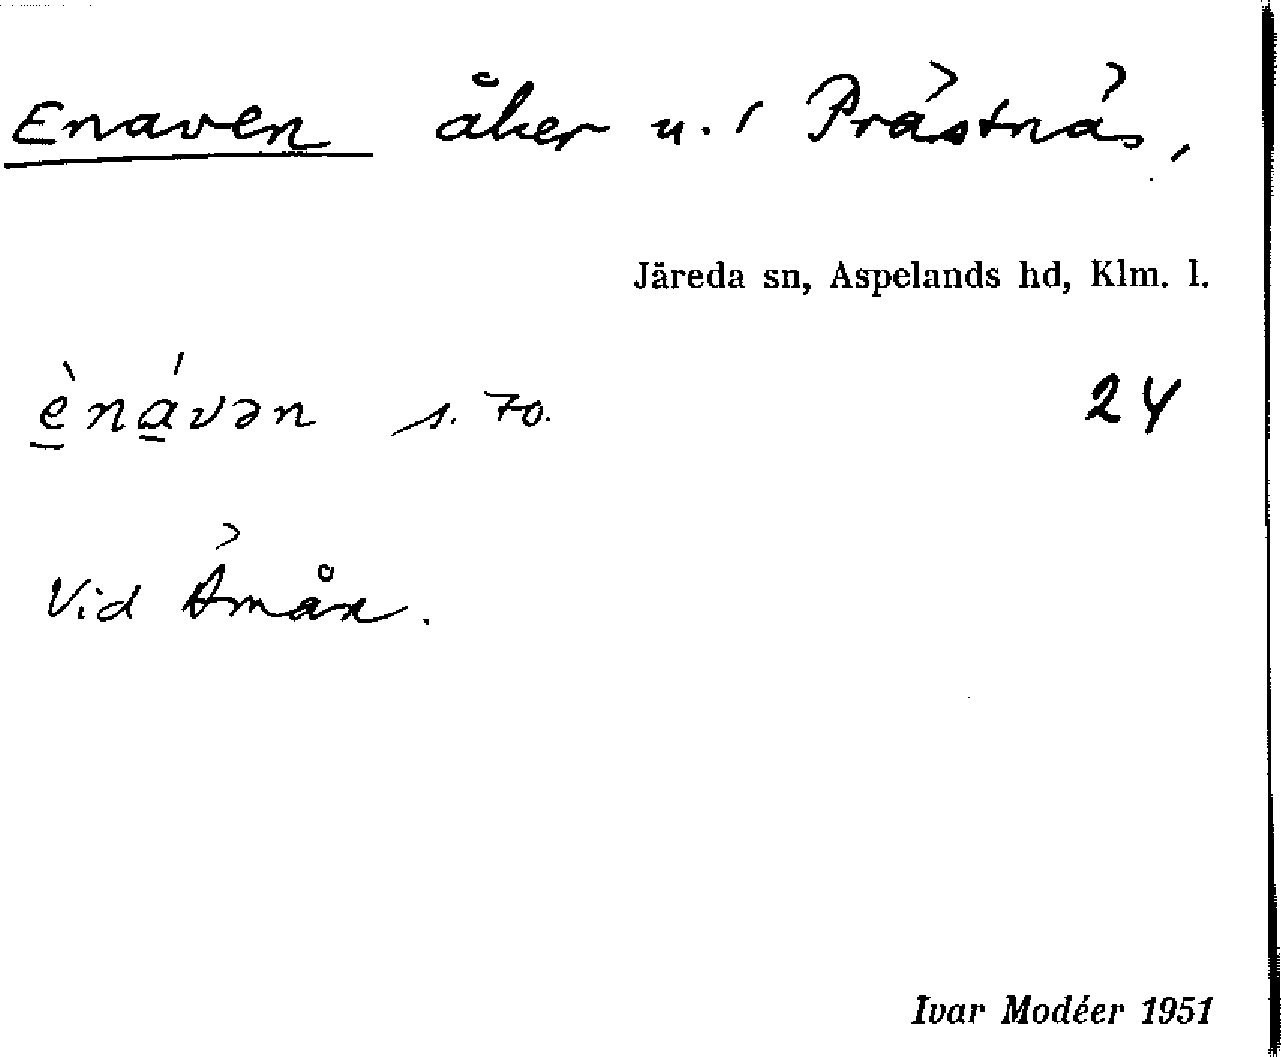 Enaven åker u. / Prästnäs,
Järeda sn, Aspelands hd, Klm. l.
è̠ná̠vən s. 70. 24
Vid Ämån.
Ivar Modéer 1951